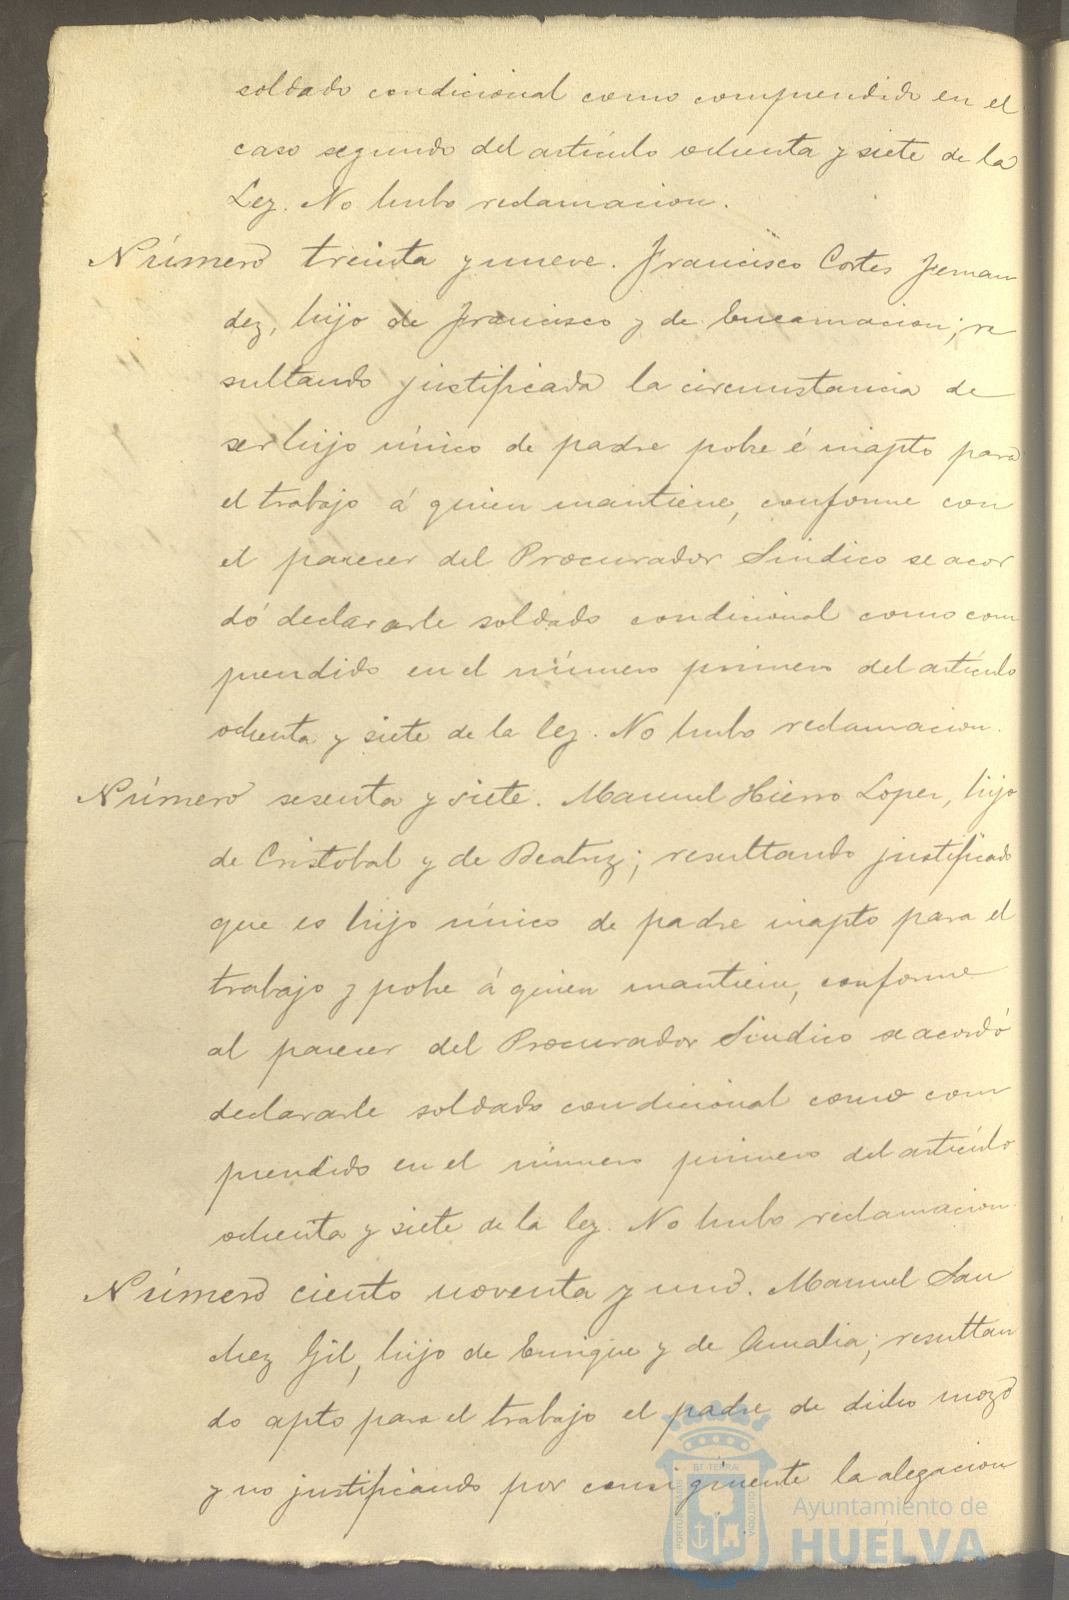 soldado condicional como comprendido en el
caso segundo del artículo ochenta y siete de la
Ley. No hubo reclamacion.
Número treinta y nueve. Francisco Cortes Fernan
dez, hijo de Francisco y de Encarnacion; re
sultando justificada la circunstancia de
ser hijo único de padre pobre é inapto para
el trabajo á quien mantiene, conforme con
el parecer del Procurador Sindico se acor
dó declararle soldado condicional como com
prendido en el número primero del artículo
ochenta y siete de la ley. No hubo reclamacion.
Número sesenta y siete. Manuel Hierro Lopez, hijo
de Cristobal y de Beatriz; resultando justificado
que es hijo único de padre inapto para el
trabajo y pobre á quien mantiene, conforme
al parecer del Procurador Sindico se acordó
declararle soldado condicional como com
prendido en el número primero del artículo
ochenta y siete de la ley. No hubo reclamacion.
Número ciento noventa y uno. Manuel San
chez Gil, hijo de Enrique y de Amalia; resultan
do apto para el trabajo el padre de dicho mozo
y no justificando por consiguiente la alegacion
PORTUS MARIS ET TERRAE CUSTODIA
Ayuntamiento de
HUELVA